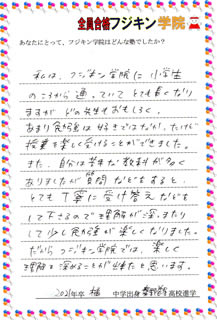 全員合格フジキン学院
あなたにとって、フジキン学院はどんな塾でしたか?
私は、フジキン学院に小学生
のころから通っていてとても長くなり
ますがどの先生もおもしろく、
あまり勉強は好きではないが、たいせつ
授業を楽しく受けることができました。
また、自分は苦手な教科が多く
ありましたが質問などをすると、
とても丁寧に受け答えなどを
して下さるので理解が深まったり
して少し勉強が楽しくなりました。
だからフジキン学院では、楽しく
理解を深めることが出来たと思います。
2021年卒 橘 中学出身 高校進学